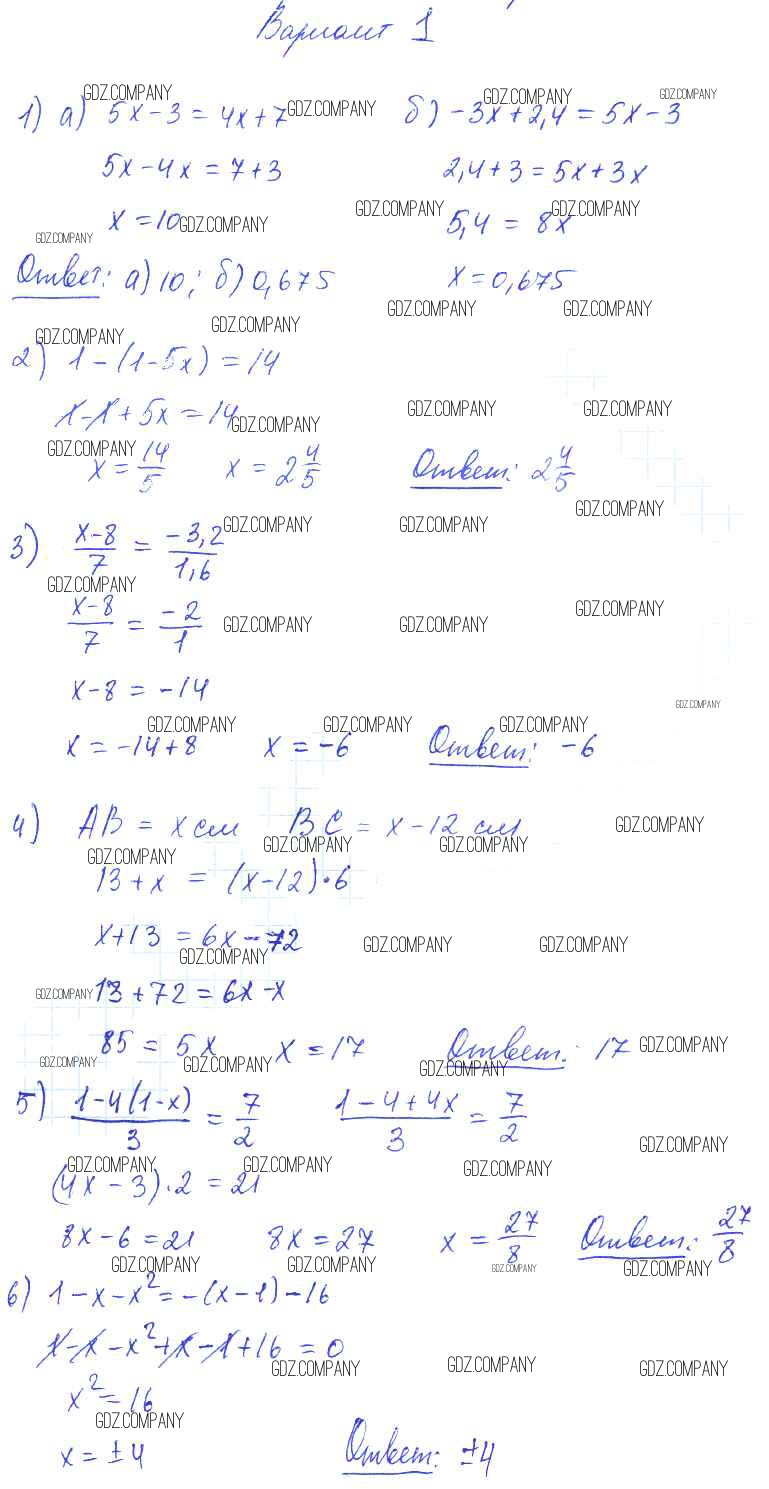 Вариант 1
1) а) 5x - 3 = 4x + 7 б) -3x + 2,4 = 5x - 3
5x - 4x = 7 + 3 2,4 + 3 = 5x + 3x
x = 10 5,4 = 8x
Ответ: а) 10; б) 0,675 x = 0,675
2) 1 - (1 - 5x) = 14
1 - 1 + 5x = 14
x = 14/5 x = 2 4/5 Ответ: 2 4/5
3) (x-8)/7 = -3,2/1,6
(x-8)/7 = -2/1
x - 8 = -14
x = -14 + 8 x = -6 Ответ: -6
4) AB = x см BC = x - 12 см
13 + x = (x - 12) · 6
x + 13 = 6x - 72
13 + 72 = 6x - x
85 = 5x x = 17 Ответ: 17
5) (1 - 4(1 - x))/3 = 7/2 (1 - 4 + 4x)/3 = 7/2
(4x - 3) · 2 = 21
8x - 6 = 21 8x = 27 x = 27/8 Ответ: 27/8
6) 1 - x - x² = -(x - 1) - 16
1 - x - x² + x - 1 + 16 = 0
x² = 16
x = ±4 Ответ: ±4
GDZ.COMPANY